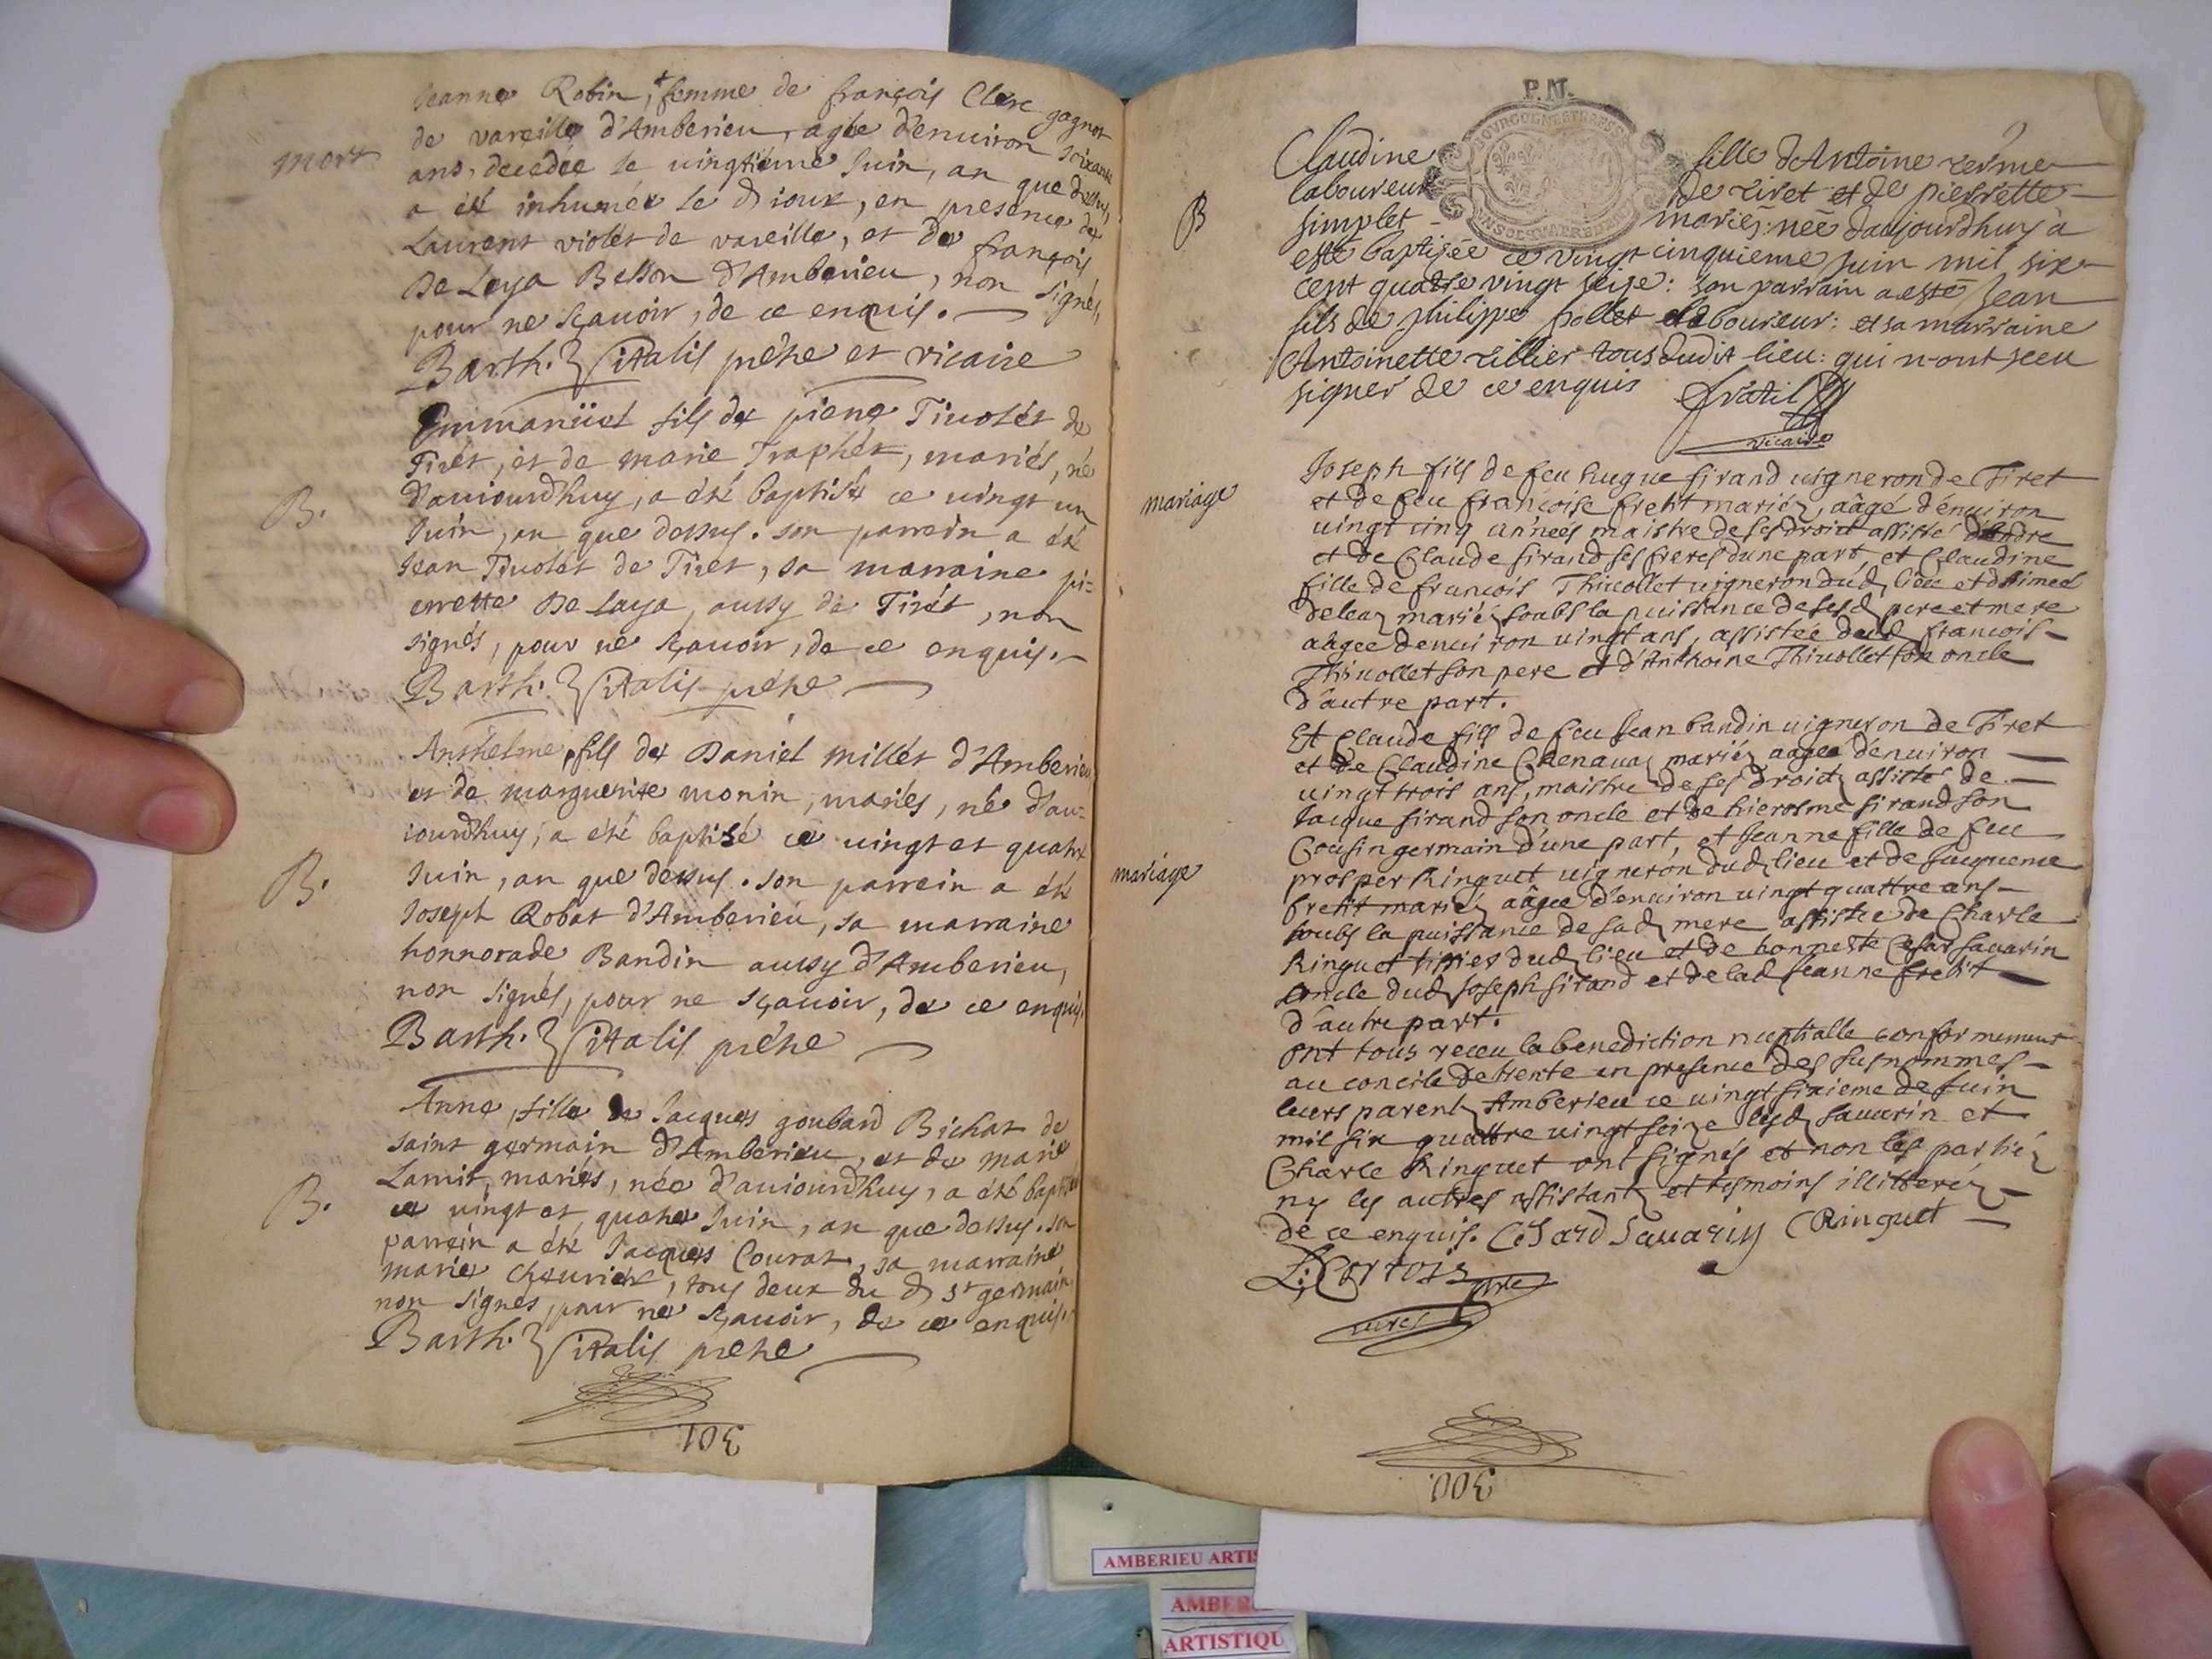 Jeanne Robin, femme de françois Clerc gagnor
de vareille d'Amberieu, agée d'enuiron soixante
ans, decedée le uingtiéme Juin, an que dessus,
a été inhumée le d iour, en presence de
Laurent violet de vareille, et de françois
De Laya Besson d'Amberieu, non signés,
pour ne sçauoir, de ce enquis.
Barth. Vitalis prétre et vicaire
mort
Emmanüel fils de pierre Tiuolét de
Tirét, et de marie Traphét, mariés, né
d'auiourdhuy, a été baptisé ce uingt un
Juin, an que dessus. son parrein a été
Jean Tiuolét de Tiret, sa marraine pi=
errette De Laya, aussy de Tirét, non
signés, pour ne sçauoir, de ce enquis.
Barth. Vitalis prétre
B.
Anthelme, fils de Daniel millét d'Amberieu
et de marguerite monin, mariés, né d'au=
iourdhuy, a été baptisé ce uingt et quatre
Juin, an que dessus. son parrein a été
Joseph Robat d'Amberieu, sa marraine
honnorade Bandin aussy d'Amberieu,
non signés, pour ne sçauoir, de ce enquis.
Barth. Vitalis prétre
B.
Anne, fille de Jacques goubard Bichat de
saint germain d'Amberieu, et de marie
Lamit, mariés, née d'auiourdhuy, a été baptisée
ce uingt et quatre Juin, an que dessus. son
parrein a été Jacques Courat, sa marraine
marie, tous deux du d st germain
non signés, pour ne sçauoir, de ce enquis.
Barth. Vitalis prétre
B.
301
P. M.
Claudine fille d'Antoine
laboureur de tiret et de pierrette
simplet mariés: née daujourdhuy à
esté baptisée ce vingt cinquieme juin mil six
cent quatre vingt seise: son parrain a esté Jean
fils de philippe pollet laboureur: et sa marraine
Antoinette tillier tous dudit lieu: qui n-ont sceu
signer de ce enquis
vicaire
B
Joseph fils de feu hugue sirand uigneron de Tiret
et de feu francoise fretit mariéz, aâgé d'enuiron
uingt cinq années maistre de ses droict assisté d'Andre
et de Claude sirand ses freres d'une part et Claudine
fille de francois Thiuollet uigneron dud lieu et d'
deleaz mariéz soubs la puissance de sesd pere et mere
aâgee denuiron uingt ans, assistée dud francois
Thiuollet son pere et d'Anthoine Thiuollet son oncle
d'autre part.
mariage
Et Claude fils de feu Jean bandin uigneron de Tiret
et de Claudine Chenauaz mariéz aâgee d'enuiron
uingt trois ans, maistre de ses droictz assisté de
Jacque sirand son oncle et de hierosme sirand son
Cousin germain d'une part, et Jeanne fille de feu
prosper Ringuet uigneron dud lieu et de Jacqueme
fretit mariéz aâgee d'enuiron uingt quattre ans
soubs la puissance de sad mere assistée de Charle
Ringuet dud lieu et de honneste Cesar sauarin
oncle dud Joseph sirand et de lad Jeanne fretit
d'autre part.
mariage
ont tous receu la benediction nuptialle conformement
au concile de trente en presence des susnommes
leurs parentz Amberieu ce uingt sixieme de Juin
mil six quattre uingt seize lesd sauarin et
Charle Ringuet ont signés et non les partiez
ny les autres assistantz et tesmoins illitteréz
de ce enquis. CeSard Sauarin C Ringuet
curé
300.
AMBERIEU ARTIS
AMBER
ARTISTIQU